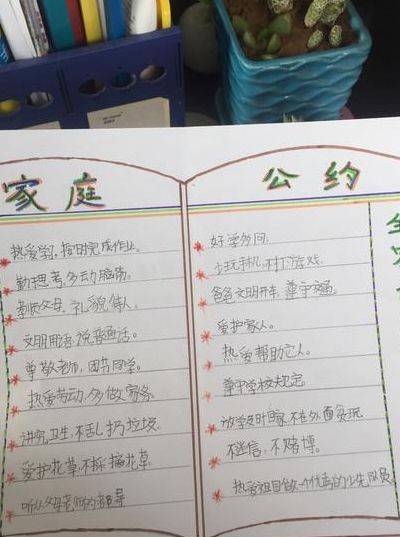 家庭
热爱学习，按时完成作业。
勤思考，多动脑筋。
孝顺父母，礼貌待人。
文明用语，说普通话。
尊敬老师，团节同学。
热爱劳动，多做家务
讲究卫生，不乱扔垃圾。
爱护花草，不採摘花草
听从父母老师的教导
公约
好学多问。
少玩手机，不打游戏。
爸爸文明开车，尊守交通。
爱护家人。
热爱帮助它人。
尊守学校规定。
放学及时回家，不在外面贪玩
不迷信，不赌博。
热爱祖国做一个优秀的少先队员
全